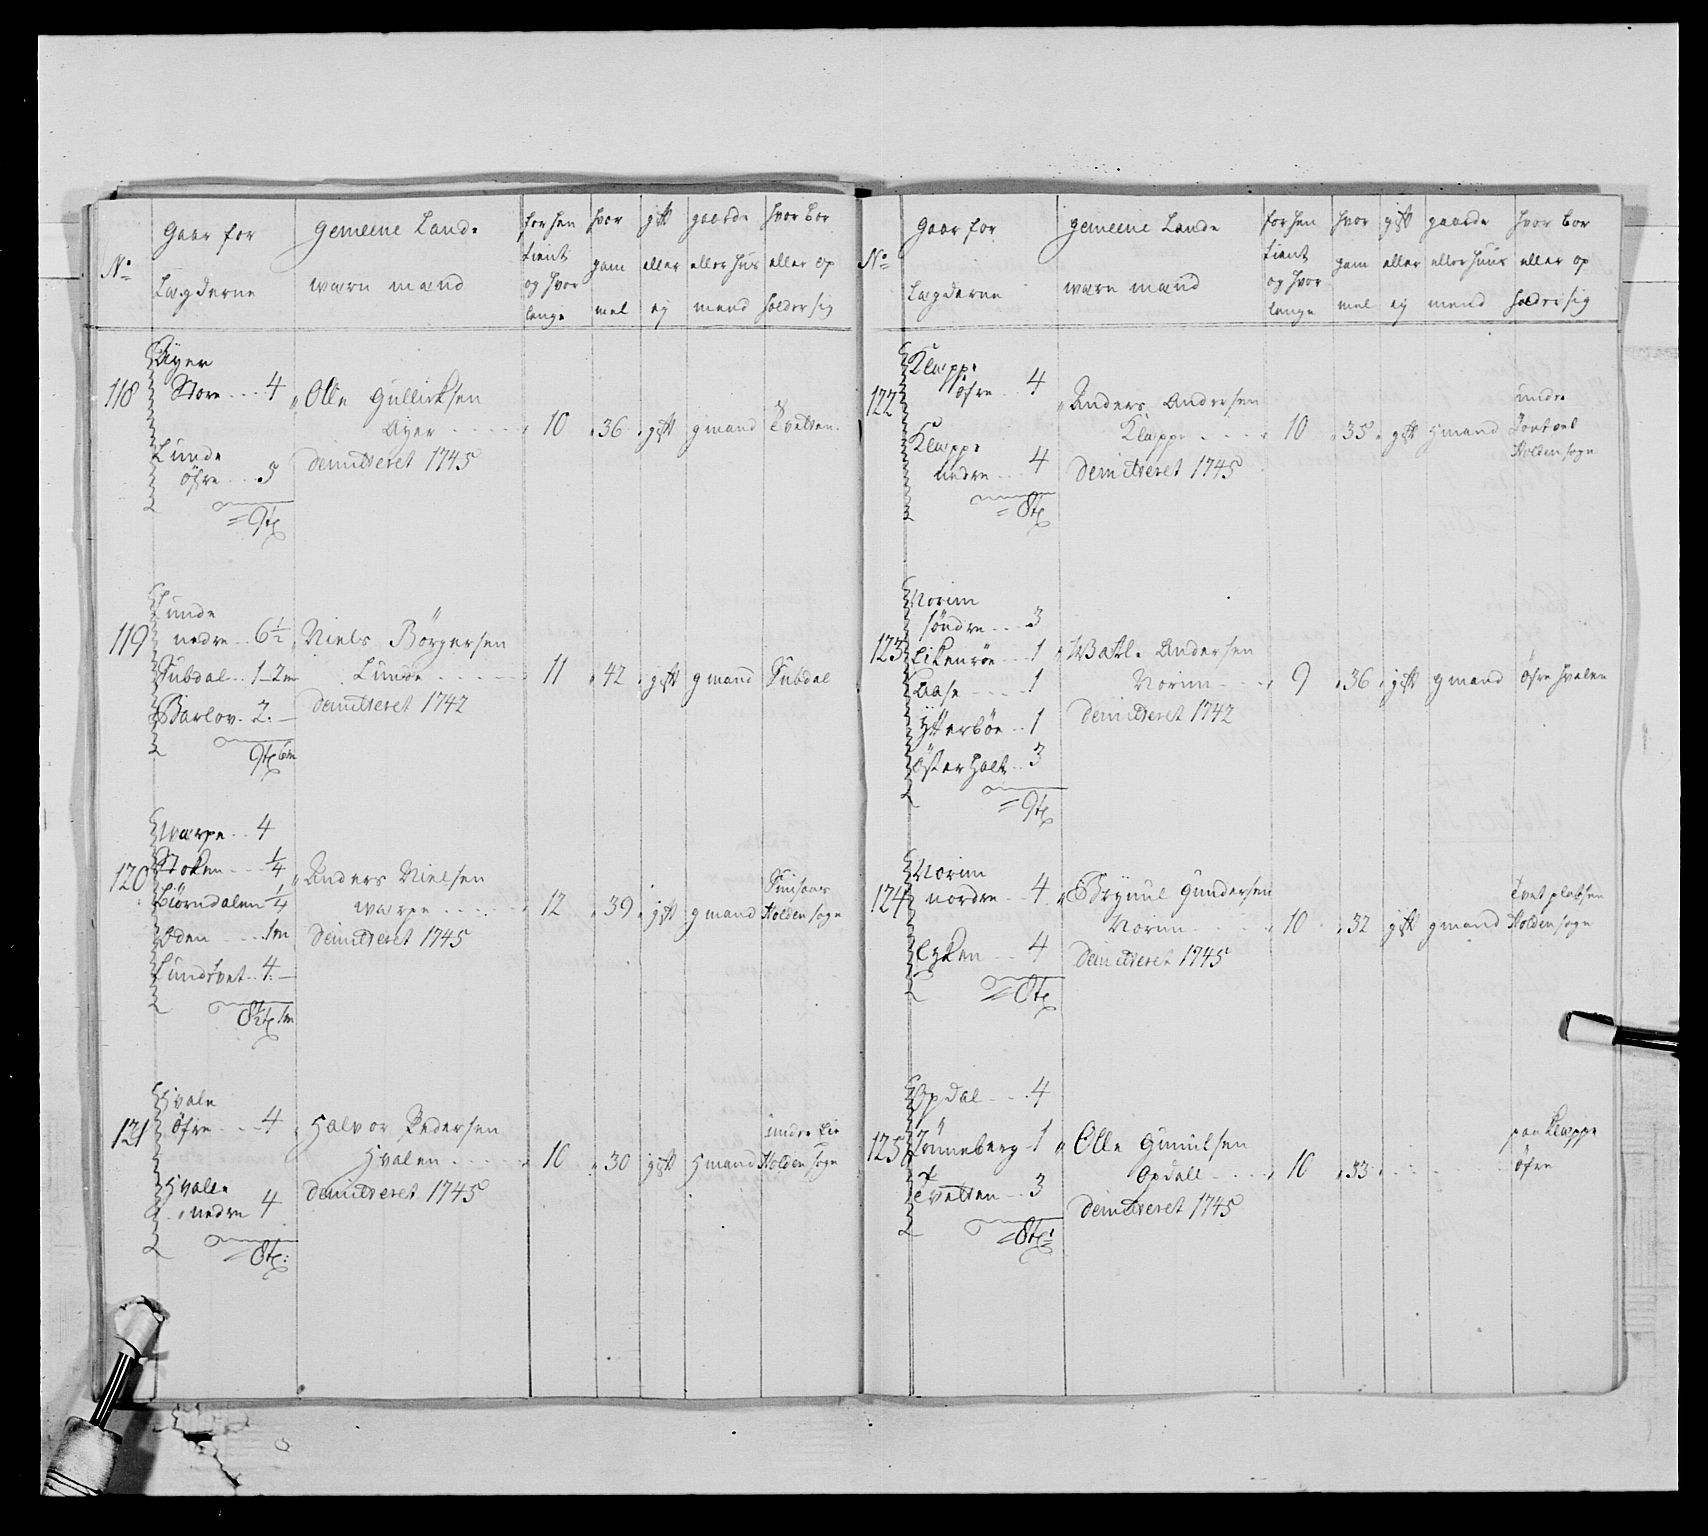 No
Gaar for
Lægderne
gemeene Lands
wærn mænd
forhen
tient
og hvor
lenge
hvor
gam
mel
gift
eller
ej
gaards
eller hus
mend
hvor bor
eller op
holder sig
118
Øyer
Store 4
Lunde
öfre 5
9 tl
Olle Gullichsen
Øyer
Demitteret 1745
10
36
gift
gmand
Tvetten
119
Lunde
nedre 6½
Subdal 1-2m
Barlov 2
9 tl 6m
Niels Börgersen
Lunde
Demitteret 1742
11
42
gift
gmand
Subdal
120
Wærpe 4
Stoken ¼
Biörndalen ¼
Oden 1m
Lundtvet 4
8½ tl 1m
Anders Nielsen
Wærpe
Demitteret 1745
12
39
gift
gmand
Holden sogn
121
Hvale
öfre 4
Hvale
nedre 4
8 tl
Halvor Pedersen
Hvalen
Demitteret 1745
10
30
gift
Hmand
undre Lie
Holden sogn
No
Gaar for
Lægderne
gemeene Lands
wærn mænd
forhen
tient
og hvor
lenge
hvor
gam
mel
gift
eller
ej
gaards
eller huus
mend
hvor bor
eller op
holder sig
122
Klæppe
öfre 4
Klæppe
nedre 4
8 tl
Anders Andersen
Klæppe
Demitteret 1745
10
35
gift
Hmand
undre
Holden sogn
123
Norim
söndre 3
Eikenröe 1
Aase 1
Ytterböe 1
Österholt 3
9 tl
Andersen
Norim
Demitteret 1742
9
36
gift
gmand
Öfre Hvalen
124
Norim
nordre 4
Eyken 4
8 tl
Brynnil Gundersen
Norim
Demitteret 1745
10
32
gift
gmand
Tvet pladsen
Holden sogn
125
Opdal 4
Tönneberg 1
Tvetten 3
8 tl
Olle Gunnilsen
Opdall
Demitteret 1745
10
33
paa Klæppe
öfre